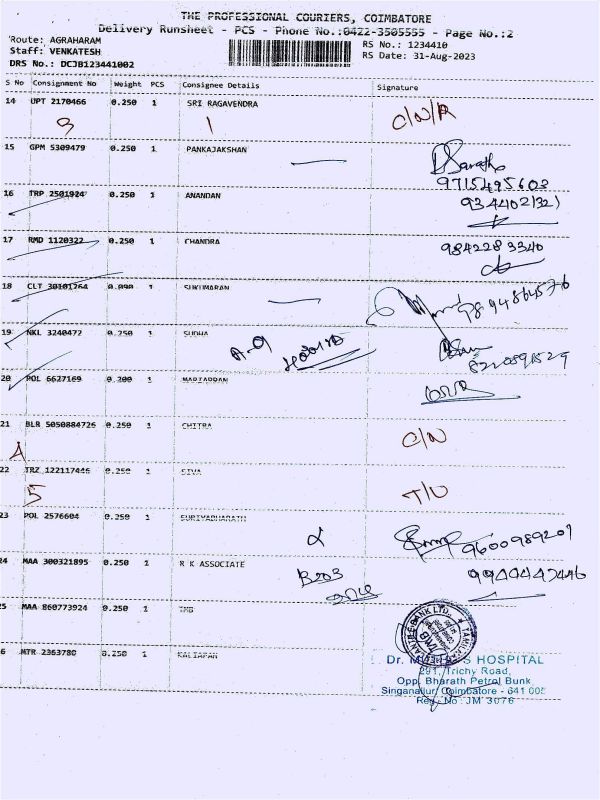 THE PROFESSIONAL COURIERS, COIMBATORE
Delivery Runsheet - PCS - Phone No.:0422-3505555 - Page No.:2
Route: AGRAHARAM
Staff: VENKATESH
DRS No.: DCJB123441002
RS No.: 1234410
RS Date: 31-Aug-2023
S No Consignment No Weight PCS Consignee Details Signature
14 UPT 2170466 0.250 1 SRI RAGAVENDRA C/N/R
3 1
15 GPM 5309479 0.250 1 PANKAJAKSHAN
9715495603
16 TRP 2501924 0.250 1 ANANDAN
17 RMD 1120322 0.250 1 CHANDRA 9842283340
18 CLT 30101264 0.090 1 SUKUMARAN
19 NKL 3240472 0.250 1 SUDHA
20 POL 6627169 0.200 1 MARIAPPAN
21 BLR 5050884726 0.250 1 CHITRA C/N
4
22 TRZ 122117446 0.250 1 SIVA T/U
5
23 POL 2576604 0.250 1 SURIYABHARATH
9600989207
24 MAA 300321895 0.250 1 R K ASSOCIATE
25 MAA 860773924 0.250 1 TMB
26 MTR 2363780 0.250 1 KALIAPAN
HOSPITAL
291, Trichy Road,
Opp. Bharath Petrol Bunk,
Singanallur, Coimbatore - 641 005
Reg. No : JM 3076